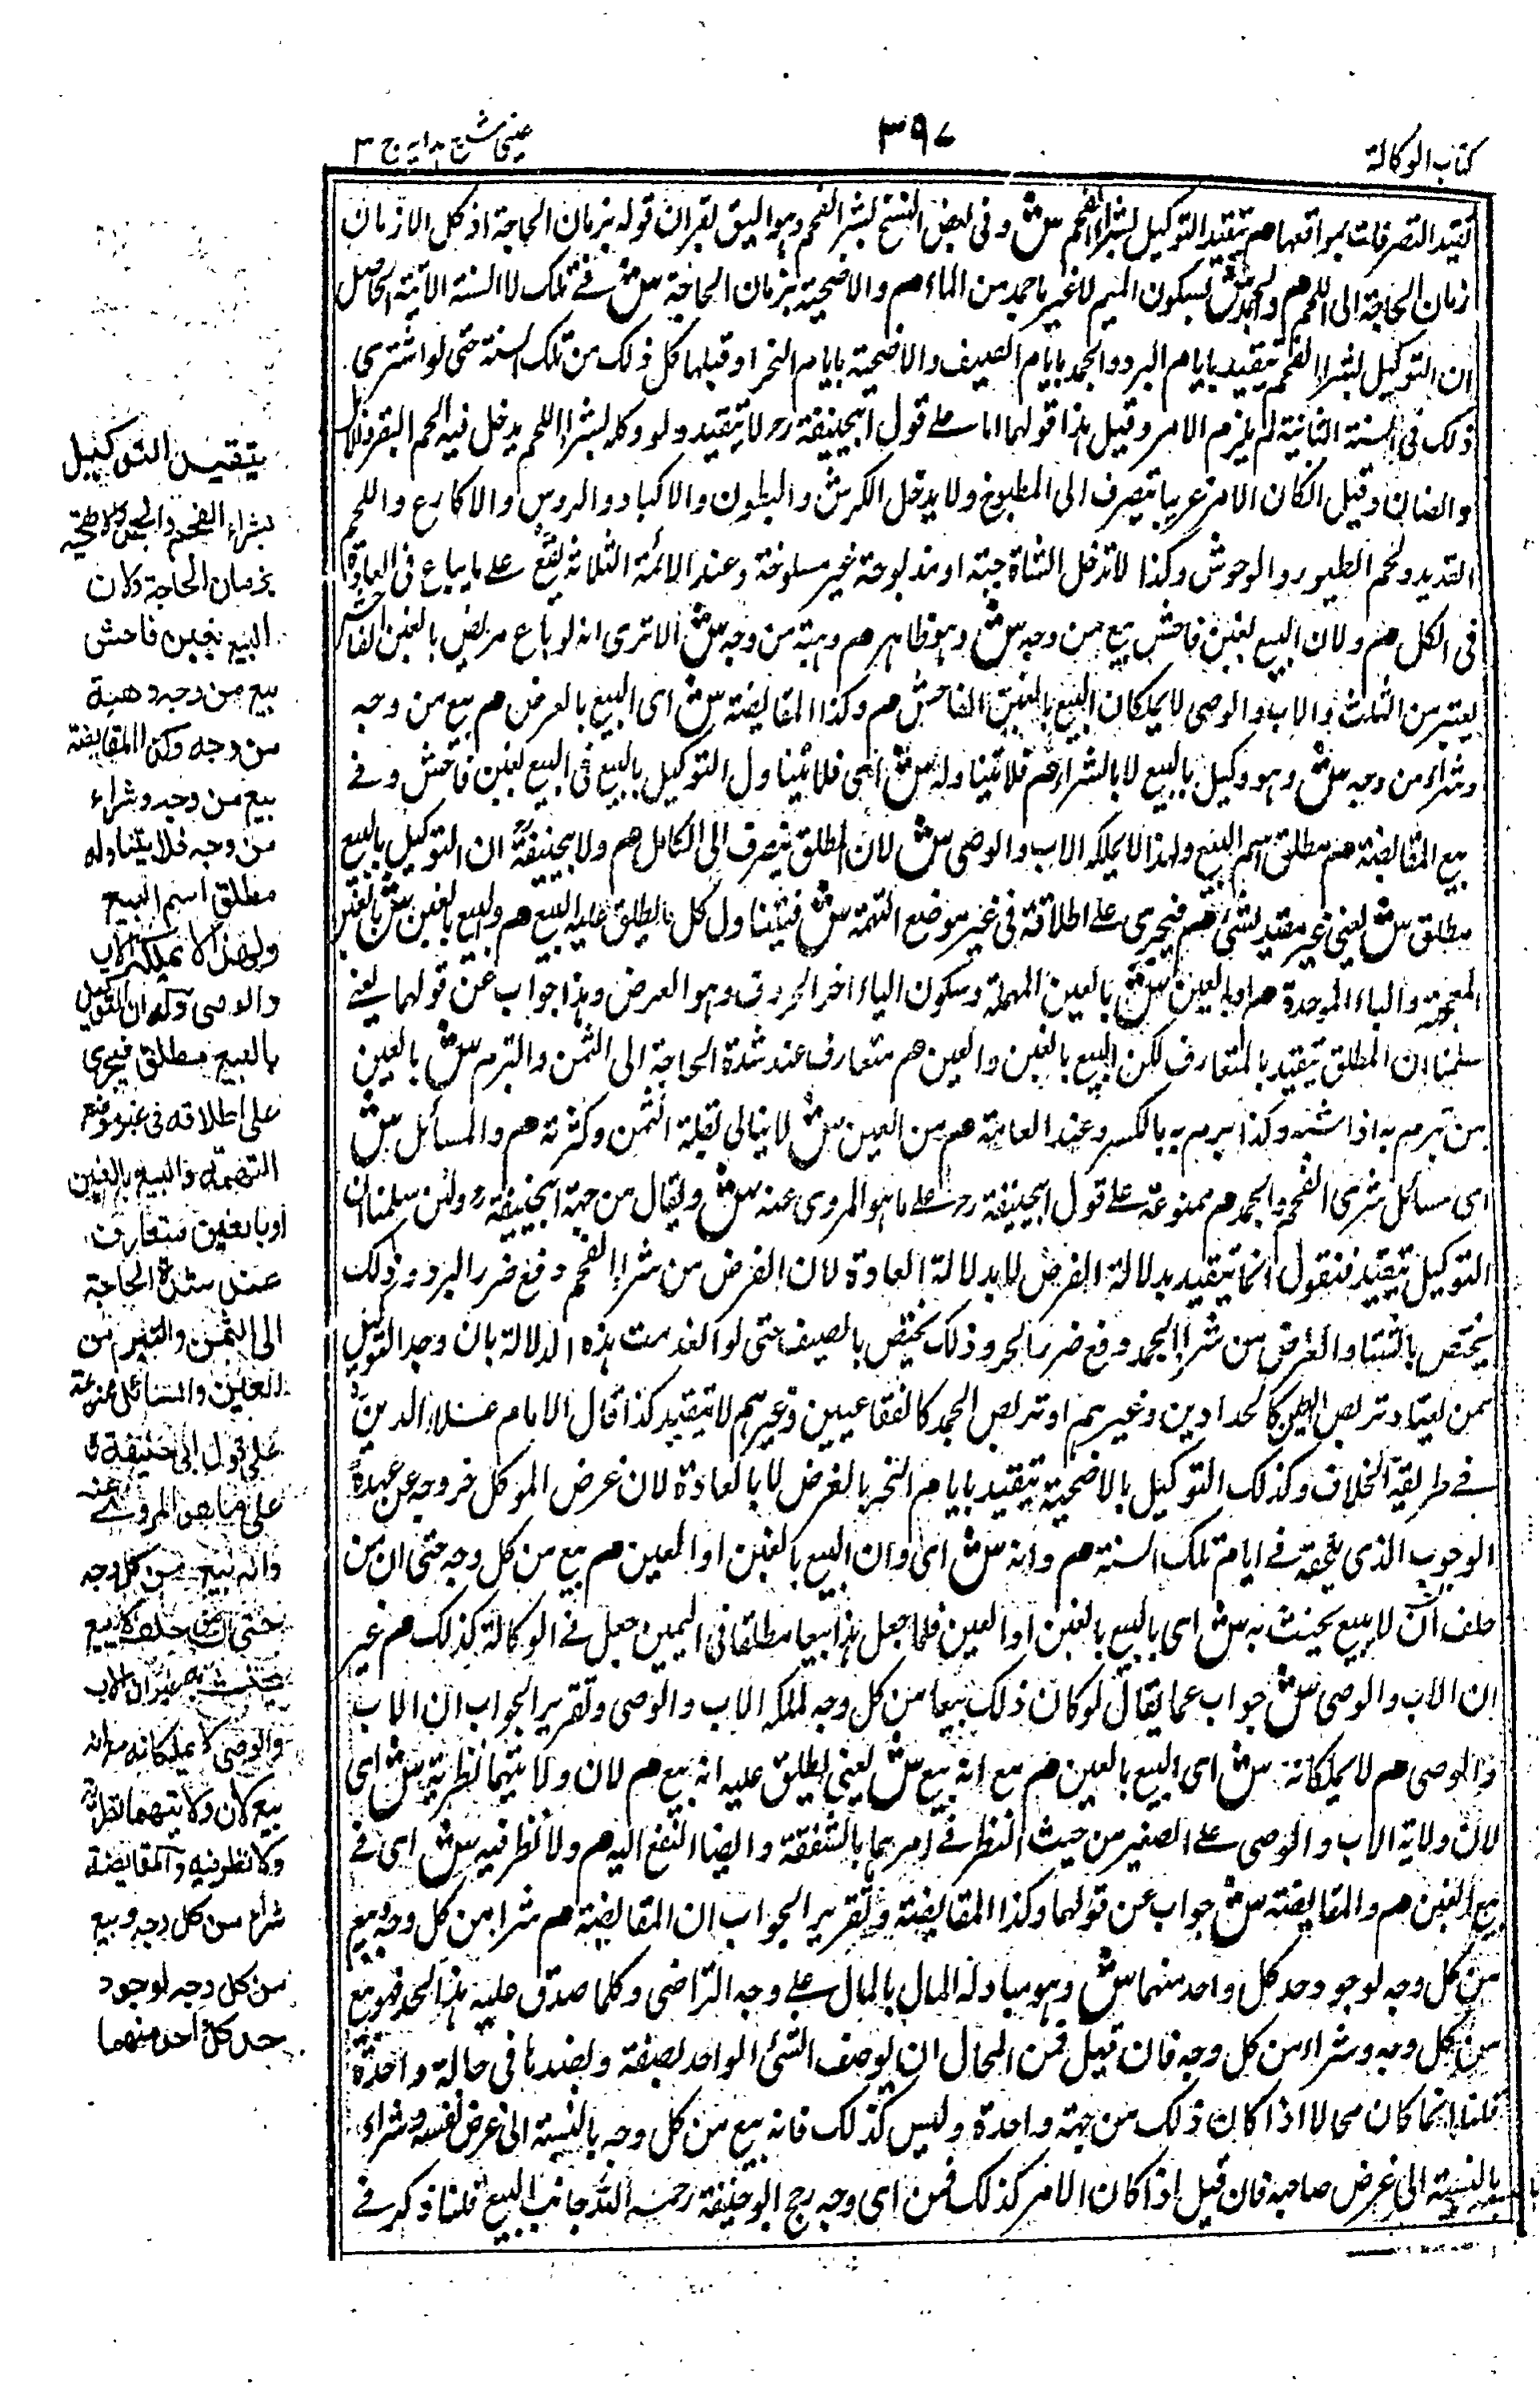 كتاب الوكالة
٣٩٧
عينى شرح هدايه ج ٣
تقيد التصرفات بمواقعها هم يتقيد التوكيل بشراء الفحم ش وفى بعض النسخ بشر الفحم وهو اليق بقران قوله بزمان الحاجة اذ كل الازمان
زمان الحاجة الى اللحم هم والجمد ش بسكون الميم لا غير ما جمد من الماء هم والاضحية بزمان الحاجة ش فے تلك لا السنة الآتية الحاصل
ان التوكيل بشراء الفحم يتقيد بايام البرد والجمد بايام الصيف والاضحية بايام النحر او قبلها كل ذلك من تلك السنة حتى لو اشترى
ذلك فى السنة الثانية لم يلزم الامر وقيل هذا قولهما اما علے قول ابيحنيفة رح لا يتقيد ولو وكله بشراء اللحم يدخل فيه لحم البقر والابل
والضان وقيل ان كان الامر غريبا يتصرف الى المطبوخ ولا يدخل الكرش والبطون والاكباد والروس والاكارع واللحم
القديد ولحم الطيور والوحوش وكذا لا تدخل الشاة حية او مذبوحة غير مسلوخة وعند الائمة الثلاثة يقع علے ما يباع فى العادة
فى الكل هم ولان البيع بغبن فاحش بيع من وجه ش وهو ظاهر هم وهبة من وجه ش الا ترى انه لو باع مريض بالغبن الفاحش
يعتبر من الثلث والاب والوصى لا يملكان البيع بالغبن الفاحش هم وكذا المقايضة ش اى البيع بالعرض هم بيع من وجه
وشراء من وجه ش وهو وكيل بالبيع لا بالشراء هم فلا يتناوله ش اى فلا يتناول التوكيل بالبيع فى البيع بغبن فاحش وفے
بيع المقايضة هم مطلق اسم البيع ولهذا لا يملكه الاب والوصى ش لان المطلق يتصرف الى الكامل هم ولا بيحنيفة رح ان التوكيل بالبيع
مطلق ش يعنى غير مقيد بشئ هم فيجرى علے اطلاقه فى غير موضع التهمة ش فيتناول كل ما يطلق عليه البيع هم والبيع بالغبن ش بالغين
المعجمة والباء الموحدة هم او بالعين ش بالعين المهملة وسكون الياء اخر الحروف وهو العرض وهذا جواب عن قولهما يعنے
سلمنا ان المطلق يتقيد بالمتعارف لكن البيع بالغبن والعين هم متعارف عند شدة الحاجة الى الثمن والتبرم ش بالعين
من تبرم به اذا سئمه وكذا برم به بالكسر وعند العامة هم من العين ش لا يبالى بقلة الثمن وكثرته هم والمسائل ش
اى مسائل شرى الفحم والجمد هم ممنوعة علے قول ابيحنيفة رح علے ما هو المروى عنه ش ويقال من جهة ابيحنيفة رح ولئن سلمنا ان
التوكيل يتقيد فنقول انما يتقيد بدلالة الغرض لا بدلالة العادة لان الغرض من شراء الفحم دفع ضرر البرد وذلك
يختص بالشتاء والغرض من شراء الجمد دفع ضرر الحر وذلك يختص بالصيف حتى لو انعدمت هذه الدلالة بان وجد التوكيل
ممن يعتاد تربص الفحم كالحدادين وغيرهم او تربص الجمد كالفقاعيين وغيرهم لا يتقيد كذا قال الامام علاء الدين
فے طريقة الخلاف وكذلك التوكيل بالاضحية يتقيد بايام النحر بالغرض لا بالعادة لان غرض الموكل خروجه عن عهدة
الوجوب الذى يلحقه فے ايام تلك السنة هم وانه ش اى وان البيع بالغبن او العين هم بيع من كل وجه حتى ان من
حلف ان لا يبيع يحنث به ش اى بالبيع بالغبن او العين فلما جعل هذا بيعا مطلقا فى اليمين جعل فے الوكالة كذلك هم غير
ان الاب والوصى ش جواب عما يقال لو كان ذلك بيعا من كل وجه لملكه الاب والوصى وتقرير الجواب ان الاب
والوصى هم لا يملكانه ش اى البيع بالغبن هم مع انه بيع ش يعنى يطلق عليه انه بيع هم لان ولايتهما نظرية ش اى
لان ولاية الاب والوصى علے الصغير من حيث النظر فے امرهما بالشفقة وايصال النفع اليه هم ولا نظر فيه ش اى فى
بيع الغبن هم والمقايضة ش جواب عن قولهما وكذا المقايضة وتقرير الجواب ان المقايضة هم شراء من كل وجه وبيع
من كل وجه لوجود حد كل واحد منهما ش وهو مبادلة المال بالمال علے وجه التراضى وكلما صدق عليه هذا الحد فهو بيع
من كل وجه وشراء من كل وجه فان قيل فمن المحال ان يوصف الشئ الواحد بصفة وبضدها فى حالة واحدة
قلنا انما كان محالا اذا كان ذلك من جهة واحدة وليس كذلك فانه بيع من كل وجه بالنسبة الى غرض نفسه وشراء
بالنسبة الى غرض صاحبه فان قيل اذا كان الامر كذلك فمن اى وجه رجح ابوحنيفة رحمه الله جانب البيع قلنا ذكر فے
يتقيد التوكيل
بشراء الفحم والجمد والاضحية
بزمان الحاجة ولان
البيع بغبن فاحش
بيع من وجه وهبة
من وجه وكذا المقايضة
بيع من وجه وشراء
من وجه فلا يتناوله
مطلق اسم البيع
ولهذا لا يملكه الاب
والوصى وله ان التوكيل
بالبيع مطلق فيجرى
على اطلاقه فى غير موضع
التهمة والبيع بالغبن
او بالعين متعارف
عند شدة الحاجة
الى الثمن والتبرم من
العين والمسائل ممنوعة
على قول ابى حنيفة رح
على ما هو المروى عنه
وانه بيع من كل وجه
حتى ان من حلف لا يبيع
يحنث به غير ان الاب
والوصى لا يملكانه مع انه
بيع لان ولايتهما نظرية
ولا نظر فيه والمقايضة
شراء من كل وجه وبيع
من كل وجه لوجود
حد كل واحد منهما